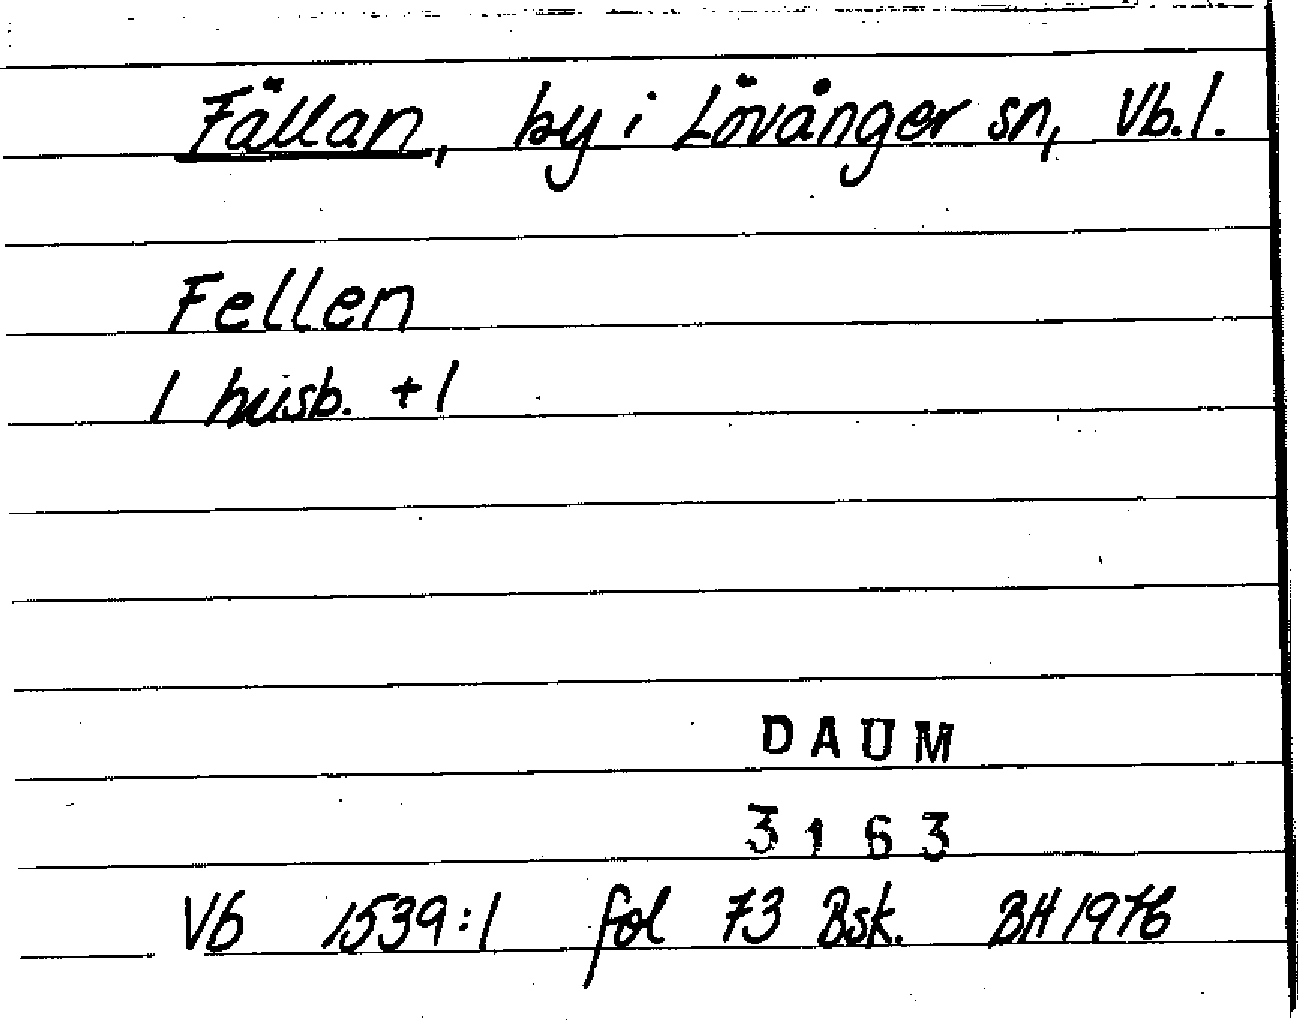 Fällan, by i Lövånger sn, Vb.l.
Fellen
1 husb. + 1
DAUM
3163
Vb 1539:1 fol 73 Bsk. BH 1976